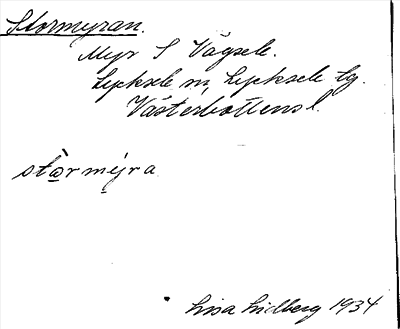 Stormyran.
Myr S Vägsele.
Lycksele sn, Lycksele tg.
Västerbottens l.
stòrmyra
Lisa Lidberg 1934